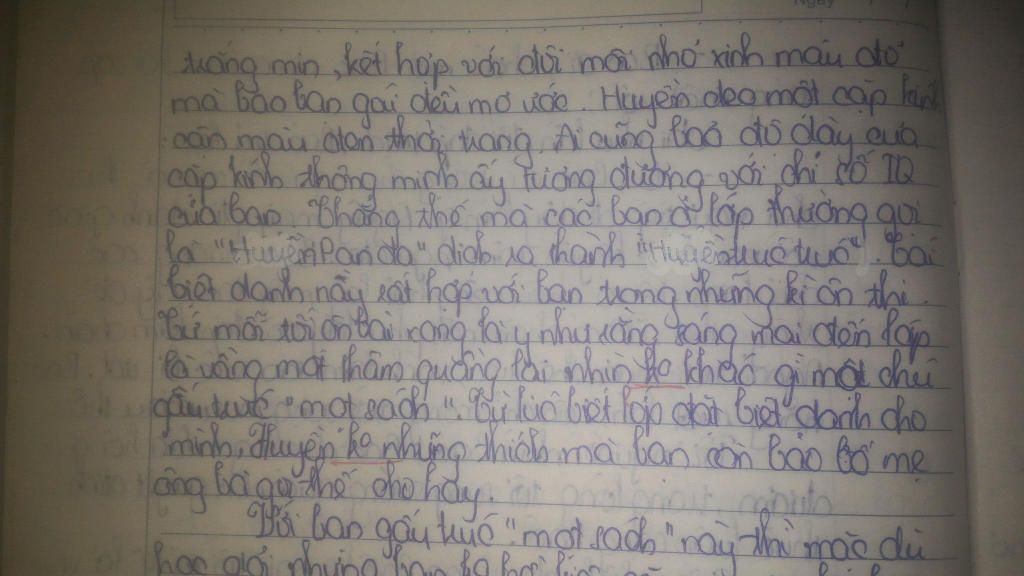 Ngày
trắng mịn, kết hợp với đôi môi nhỏ xinh màu đỏ
mà bao bạn gái đều mơ ước. Huyền đeo một cặp kính
cận màu đen thời trang. Ai cũng bảo độ dày của
cặp kính thông minh ấy tương đương với chỉ số IQ
của bạn. Chẳng thế mà các bạn ở lớp thường gọi
là "Huyền Panda" dịch ra thành "Huyền trúc trúc". Cái
biệt danh này rất hợp với bạn trong những kì ôn thi.
Cứ mỗi tối ôn bài xong là y như rằng sáng mai đến lớp
là vầng mắt thâm quầng lại nhìn ko khác gì một chú
gấu trúc "mọt sách". Từ lúc biết lớp đặt biệt danh cho
mình, Huyền ko những thích mà bạn còn bảo bố mẹ
ông bà gọi thế cho hay.
Với bạn gấu trúc "mọt sách" này thì mặc dù
học giỏi nhưng bạn ko